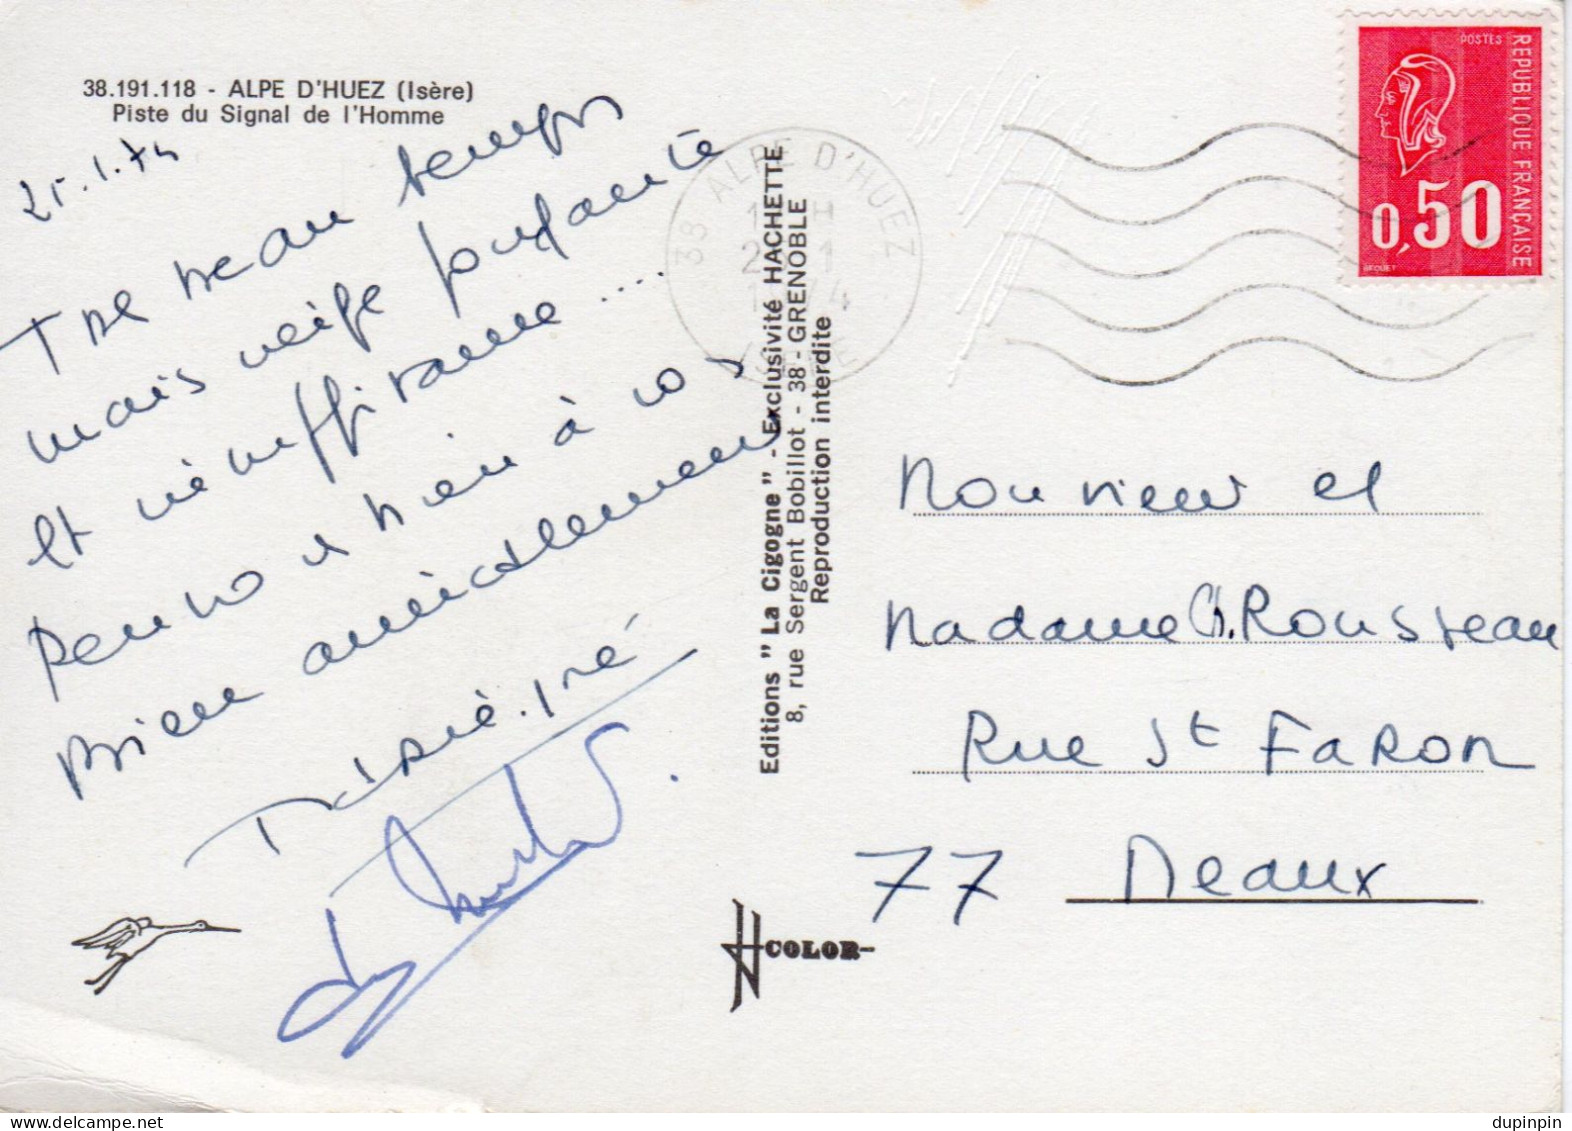 38.191.118 - ALPE D'HUEZ (Isère)
Piste du Signal de l'Homme
25.1.74
Tres beau temps
mais neige fondante
et insuffisante ...
Pensons bien à vous
Bien amicalement
Editions "La Cigogne" - Exclusivité HACHETTE
8, rue Sergent Bobillot - 38 - GRENOBLE
Reproduction interdite
COLOR
38 ALPE D'HUEZ
ISERE
POSTES
REPUBLIQUE FRANÇAISE
0,50
BEQUET
Monsieur et
Madame Rousseau
Rue St Faron
77 Meaux
delcampe.net
dupinpin